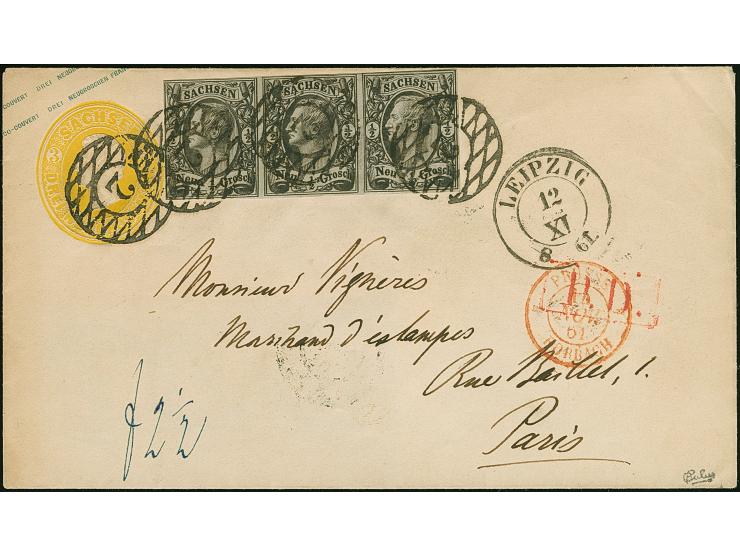 COUVERT DREI NEUGROSCHEN FRAN
CO-COUVERT DREI NEUGROSCHEN FRAN
SACHSEN
2
SACHSEN
½ ½
Neu ½ Grosch
SACHSEN
½ ½
Neu ½ Grosch
SACHSEN
½ ½
Neu ½ Grosch
LEIPZIG
12
XI
8 61
P.D.
NOV
61
FORBACH
Monsieur Vignères
Marchand d'estampes
Rue Baillet, 1.
Paris
f 2½